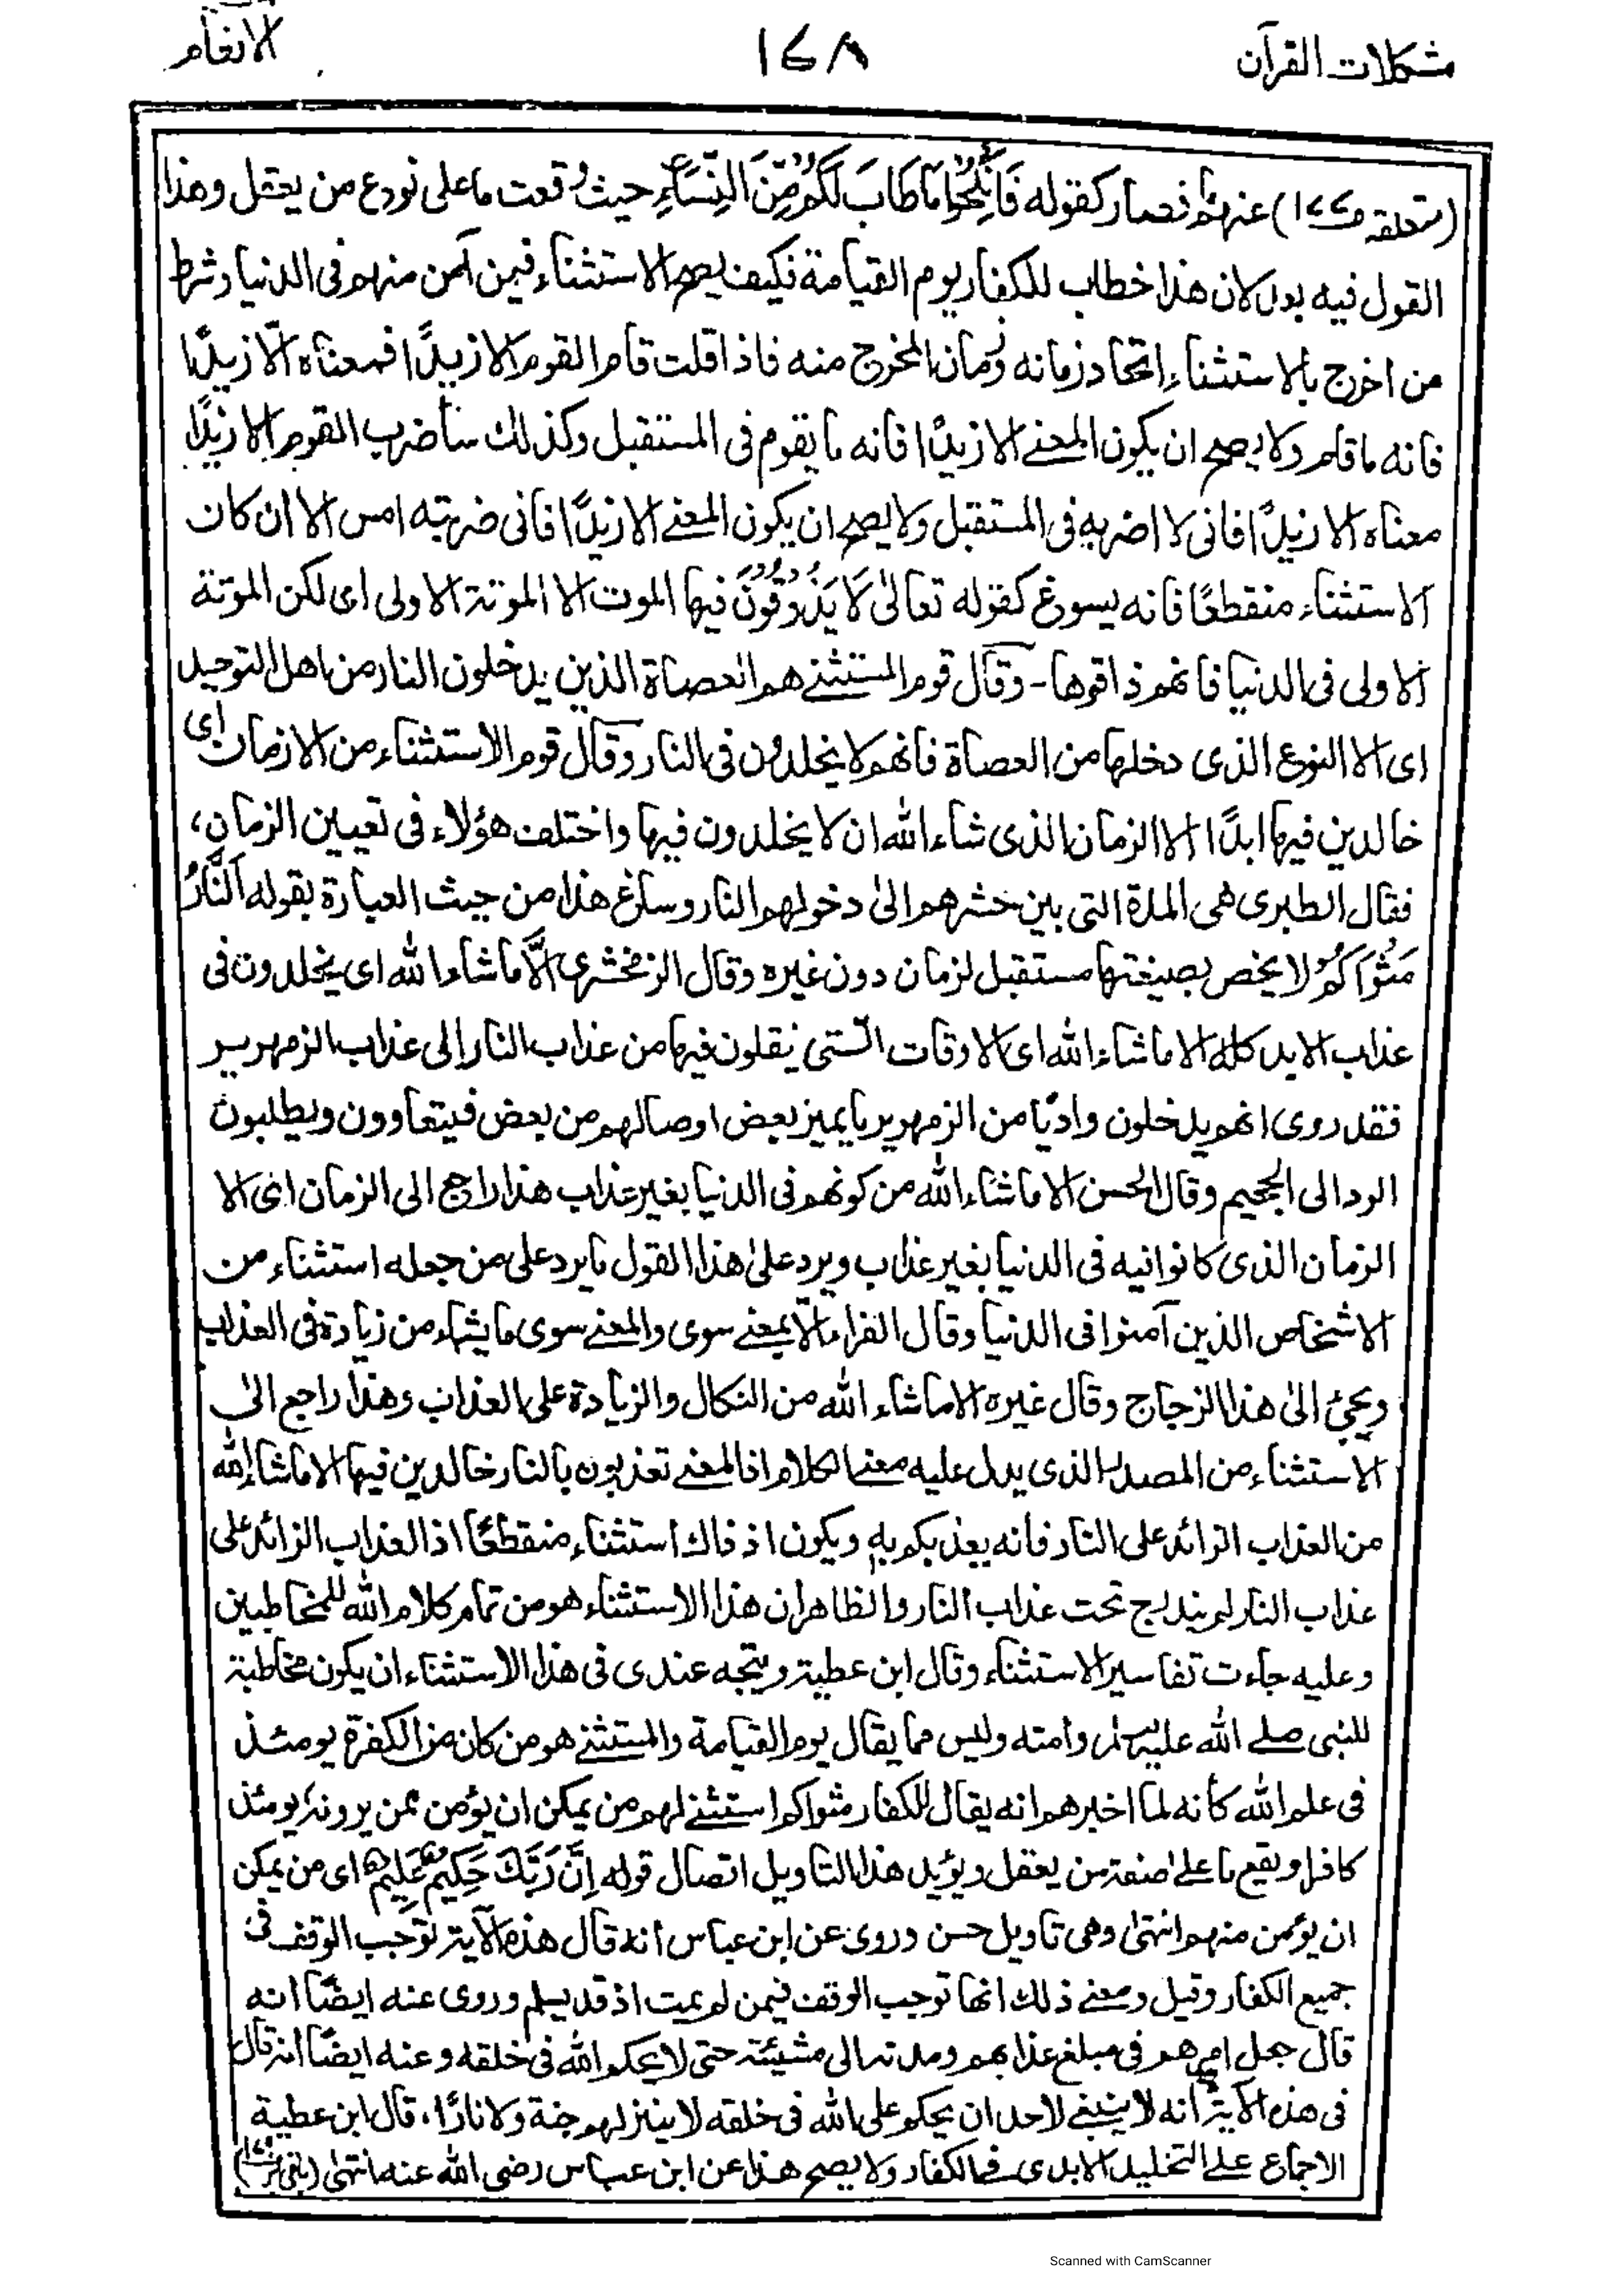 مشكلات القرآن
١٤٨
الانعام
(متعلقه ص١٤٧) عنهم فصار كقوله فَانْكِحُوْا مَا طَابَ لَكُمْ مِّنَ النِّسَآءِ حيث وقعت ما على نوع من يعقل وهذا
القول فيه بعد لان هذا خطاب للكفار يوم القيامة فكيف يصح الاستثناء فيمن آمن منهم فى الدنيا وشرط
من اخرج بالاستثناء اتحاد زمانه وزمان المخرج منه فاذا قلت قام القوم الا زيدًا فمعناه الّا زيدًا
فانه ما قام ولا يصح ان يكون المعنے الا زيدًا فانه ما يقوم فى المستقبل وكذلك سأضرب القوم الا زيدًا
معناه الا زيدًا فانى لا اضربه فى المستقبل ولا يصح ان يكون المعنے الا زيدًا فانى ضربته امس الا ان كان
الاستثناء منقطعًا فانه يسوغ كقوله تعالىٰ لَا يَذُوْقُوْنَ فيها الموت الا الموتة الاولى اى لكن الموتة
الاولى فى الدنيا فانهم ذاقوها - وقال قوم المستثنے هم العصاة الذين يدخلون النار من اهل التوحيد
اى الا النوع الذى دخلها من العصاة فانهم لا يخلدون فى النار وقال قوم الاستثناء من الازمان اى
خالدين فيها ابدًا الا الزمان الذى شاء الله ان لا يخلدون فيها واختلف هؤلاء فى تعيين الزمان،
فقال الطبرى هى المدة التى بين حشرهم الىٰ دخولهم النار وساغ هذا من حيث العبارة بقوله اَلنَّارُ
مَثْوَاكُمْ لا يخص بصيغتها مستقبل لزمان دون غيره وقال الزمخشرى الَّا ما شاء الله اى يخلدون فى
عذاب الابد كله الا ما شاء الله اى الا وقات الّتى ينقلون فيها من عذاب النار الى عذاب الزمهرير
فقد روى انهم يدخلون واديًا من الزمهرير ما يميز بعض اوصالهم من بعض فيتعاوون ويطلبون
الرد الى الجحيم وقال الحسن الا ما شاء الله من كونهم فى الدنيا بغير عذاب هذا راجع الى الزمان اى الا
الزمان الذى كانوا فيه فى الدنيا بغير عذاب ويرد علىٰ هذا القول ما يرد على من جعله استثناء من
الاشخاص الذين آمنوا فى الدنيا وقال الفراء الّا بمعنے سوى والمعنے سوى ما يشاء من زيادة فى العذاب
ويجئ الىٰ هذا الزجاج وقال غيره الا ما شاء الله من النكال والزيادة على العذاب وهذا راجع الىٰ
الاستثناء من المصدر الذى يدل عليه معنے الكلام اذ المعنے تعذبون بالنار خالدين فيها الا ما شاء الله
من العذاب الزائد على النار فانه يعذبكم به ويكون اذ ذاك استثناء منقطعًا اذ العذاب الزائد على
عذاب النار لم يندرج تحت عذاب النار والظاهر ان هذا الاستثناء هو من تمام كلام الله للمخاطبين
وعليه جاءت تفاسير الاستثناء وقال ابن عطية ويتجه عندى فى هذا الاستثناء ان يكون مخاطبة
للنبى صلے الله عليه وسلم وامته وليس مما يقال يوم القيامة والمستثنے هو من كان من الكفرة يومئذ
فى علم الله كأنه لما اخبرهم انه يقال للكفار مثواكم استثنے لهم من يمكن ان يؤمن ممن يرونه يومئذ
كافرا ويقع ما علىٰ صفة من يعقل ويؤيد هذا التاويل اتصال قوله اِنَّ رَبَّكَ حَكِيْمٌ عَلِيْمٌ اى من يمكن
ان يؤمن منهم انتهىٰ وهى تاويل حسن وروى عن ابن عباس انه قال هذه الآية توجب الوقف فى
جميع الكفار وقيل ومعنے ذلك انها توجب الوقف فيمن لم يمت اذ قد يسلم وروى عنه ايضًا انه
قال جعل امرهم فى مبلغ عذابهم ومدته الى مشيئته حتى لا يحكم الله فى خلقه وعنه ايضًا انه قال
فى هذه الآية انه لا ينبغے لاحد ان يحكم على الله فى خلقه لا ينزلهم جنة ولا نارًا، قال ابن عطية
الاجماع علے التخليد الابدى فى الكفار ولا يصح هذا عن ابن عباس رضى الله عنه انتهىٰ
Scanned with CamScanner